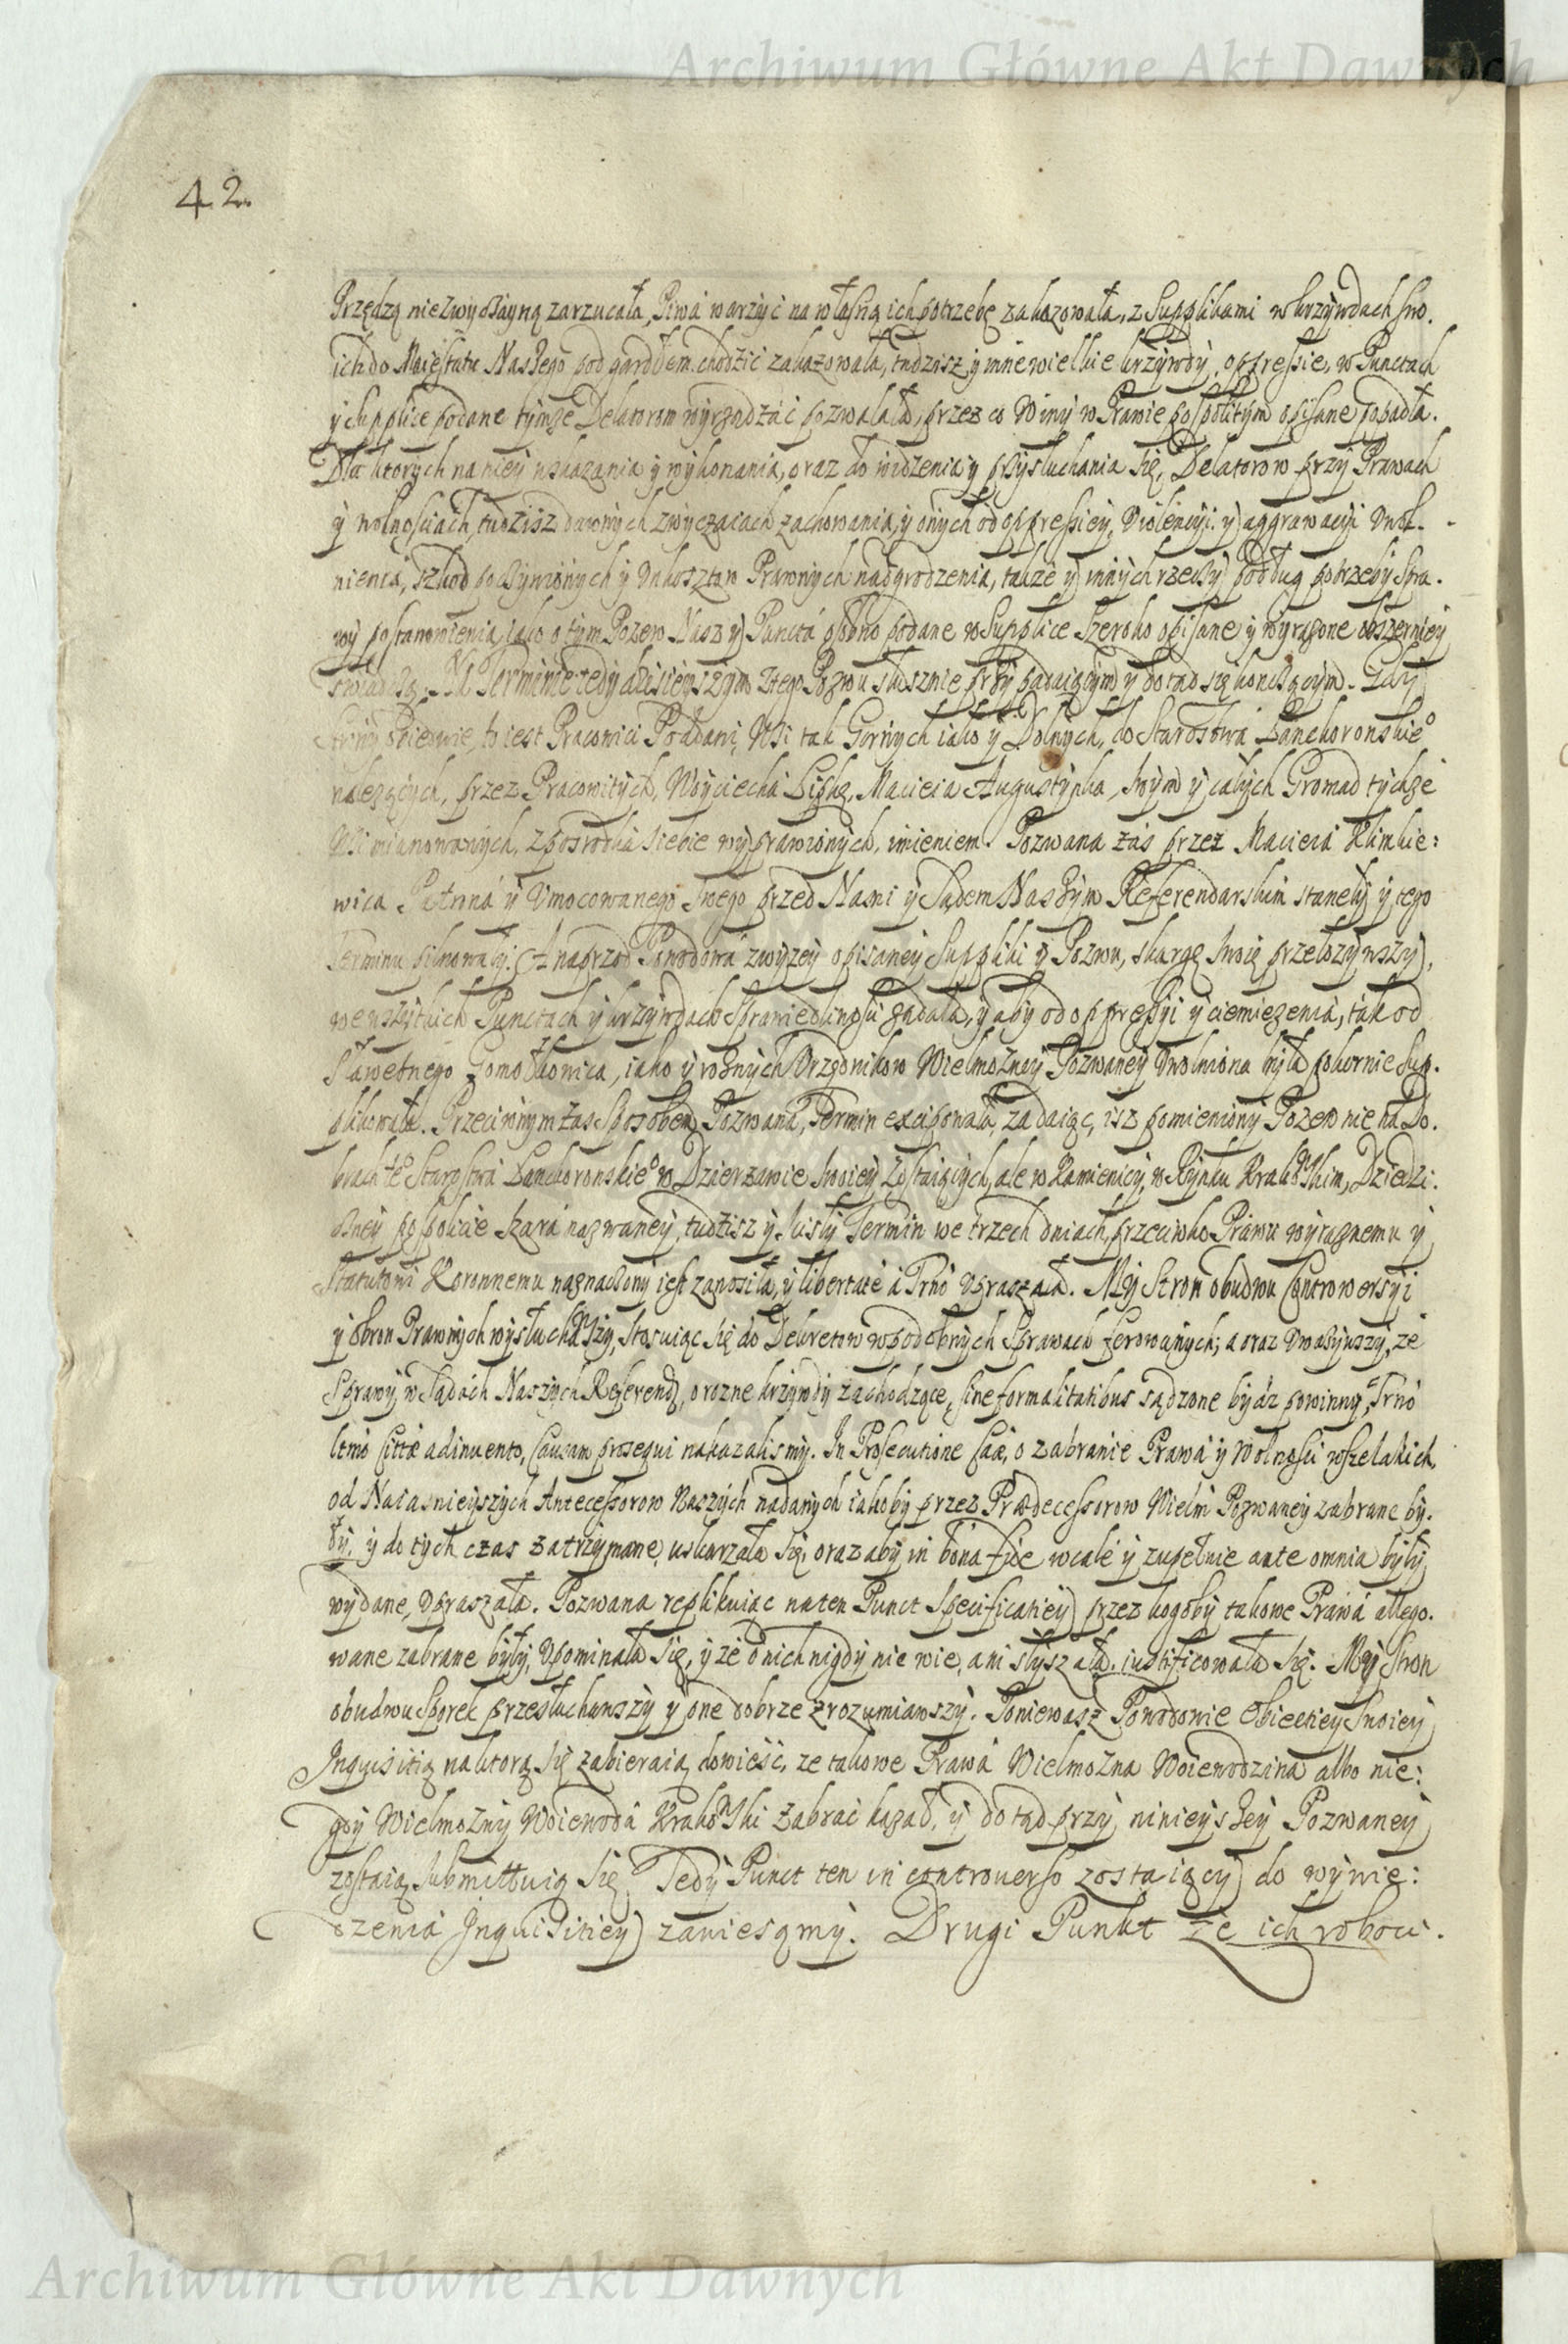 Archiwum Główne Akt Dawnych
42.
Przędzą niezwyczayną zarzucała, Piwá warzyć na własną ich potrzebę zakazowała, z Supplikami w krzywdach swo.
ich do Maiestatu Naszego pod gardłem chodzić zakazowała, tudzisz y inne wielkie krzywdy, oppressie, w Punctach
y Supplice podane tymże Delatorom wyrządzáć pozwalała, przez co Winy w Prawie pospolitym opisane popadła.
Dla ktorych na niey wskazania y wykonania, oraz do widzenia y przysłuchania się, Delatorow przy Prawach
y wolnościach, tudzisz dawnych zwyczaiach zachowania, y onych od oppressiey, Violencyi y aggrawacyi Uwol-
nienia, szkod poczynionych y Unkosztow Prawnych nadgrodzenia, także y innych rzeczy podług potrzeby Spra.
wy postanowienia, iako o tym Pozew Nasz y Punctá osobno podane w Supplice szeroko opisane y wyrażone obszerniey
swiadczą. Na Terminie tedy dzisieyszym z tego Pozwu słusznie przypadaiącym y dotąd się kończącym. Gdy
Strony obiedwie, to iest Pracowici Poddani, Wsi tak Gornych iako y Dolnych, do Starostwa Lanckoronskieo
należących, przez Pracowitych, Woyciecha Liszkę, Macieia Augustynka, swym y całych Gromad tychże
Wsi mianowanych, z posrodka siebie wyprawionych, imieniem. Pozwana zás przez Macieiá Klimkie:
wica Patroná y Umocowanego swego przed Nami y Sądem Naszym Referendarskim staneły y tego
Terminu pilnowały. A naprzod Powodowa zwyzey opisaney Suppliki y Pozwu, skargę swoię przełozywszy,
we wszytkich Punctach y krzywdach Sprawiedliwości żądała, y aby od oppressyi y ciemiezenia, tak od
Sławetnego Gomołkowica, iako y roznych Urzędnikow Wielmozney Pozwaney Uwolniona była pokornie Sup.
plikowała. Przeciwnym zas Sposobem Pozwana, Termin excipowała, zadaiąc, isz pomieniony Pozew nie na Do.
brach teo Starostwa Lanckoronskieo w Dzierzawie swoiey zostaiących, ale w Kamienicy, w Rynku Krakoskim, Dziedzi.
czney pospolicie Szará nazwaney, tudzisz y scisły Termin we trzech dniach, przeciwko Prawu wyraznemu y
Statutowi Koronnemu naznaczony iest zanosiła, y libertatẽ à Trnõ Upraszała. My Stron obudwu Controwersyi
y obron Prawnych wysłuchaẃszy, stosuiąc się do Dekretow w podobnych Sprawach ferowanych; a oraz Uwazywszy, ze
Sprawy w Sądách Naszych Referend, o rozne krzywdy zachodzące, sine formalitatibus sądzone bydz powinny, Trnõ
ltmõ Cittæ adinvento, Causam prosequi nakazalismy. In Prosecutione Cãæ, o zabranie Prawá y Wolności wszelakich,
od Naiasnieyszych Antecessorow Naszych nadanych iakoby przez Prædecessorow Wielm Pozwaney zabrane by.
ły, y do tych czas zatrzymane, uskarzała się, oraz aby in bona fide wcale y zupełnie ante omnia były
wydane, Upraszała. Pozwana replikuiąc na ten Punct Specificatiey przez kogoby takowe Prawá allego.
wane zabrane były, Upominała się, y ze o nich nigdy nie wie, ani słyszała, iustificowała się. My Stron
obudwu Sporek przesłuchawszy y one dobrze zrozumiawszy. Poniewasz Powodowie Obiectiey swoiey
Inquisitią na ktorą się zabieraią dowieść, ze takowe Prawá Wielmozna Woiewodzina albo nie:
gdy Wielmozny Woiewoda Krakoẃski zabrać kazał, y dotąd przy ninieyszey Pozwaney
zostaią, submittuią się, Tedy Punct ten in controverso zostaiący do wywie:
dzenia Inquisitiey zaniesgmy. Drugi Punkt ze ich roboci.
Archiwum Główne Akt Dawnych